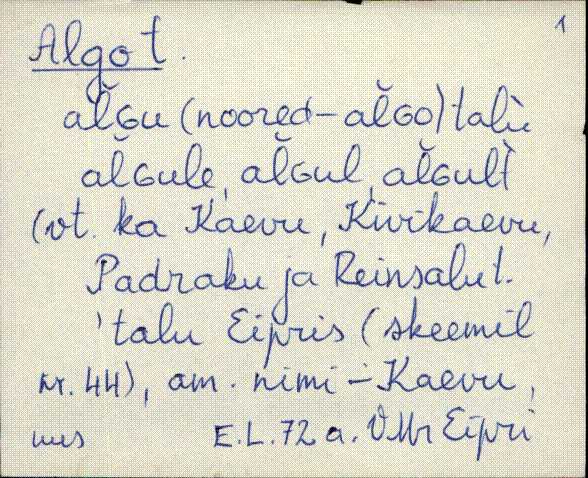 1
Algo t.
alɢ̆u (noored – alɢ̆o) talù
alɢ̆ule, alɢ̆ul, alɢ̆ult
(vt. ka Kaevu, Kivikaevu,
Padraku ja Reinsalu t.
'talu Eipris (skeemil
nr. 44), am. nimi – Kaevu,
uus E.L. 72 a. VMr Eipri